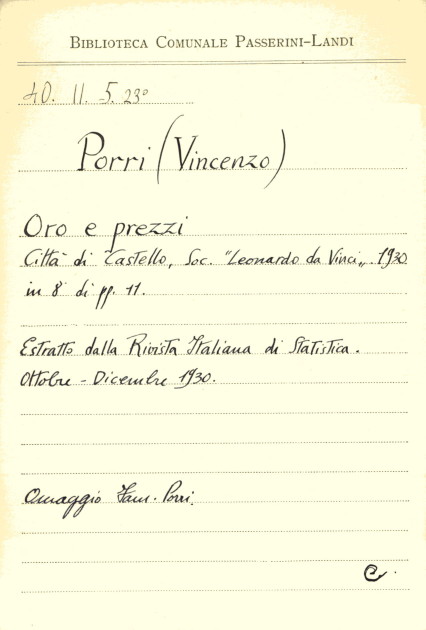 BIBLIOTECA COMUNALE PASSERINI-LANDI
40. 11. 5. 23º
Porri (Vincenzo)
Oro e prezzi
Città di Castello, Soc. "Leonardo da Vinci„ 1930
in 8° di pp. 11.
Estratto dalla Rivista Italiana di Statistica.
Ottobre - Dicembre 1930.
Omaggio Fam. Porri.
C.